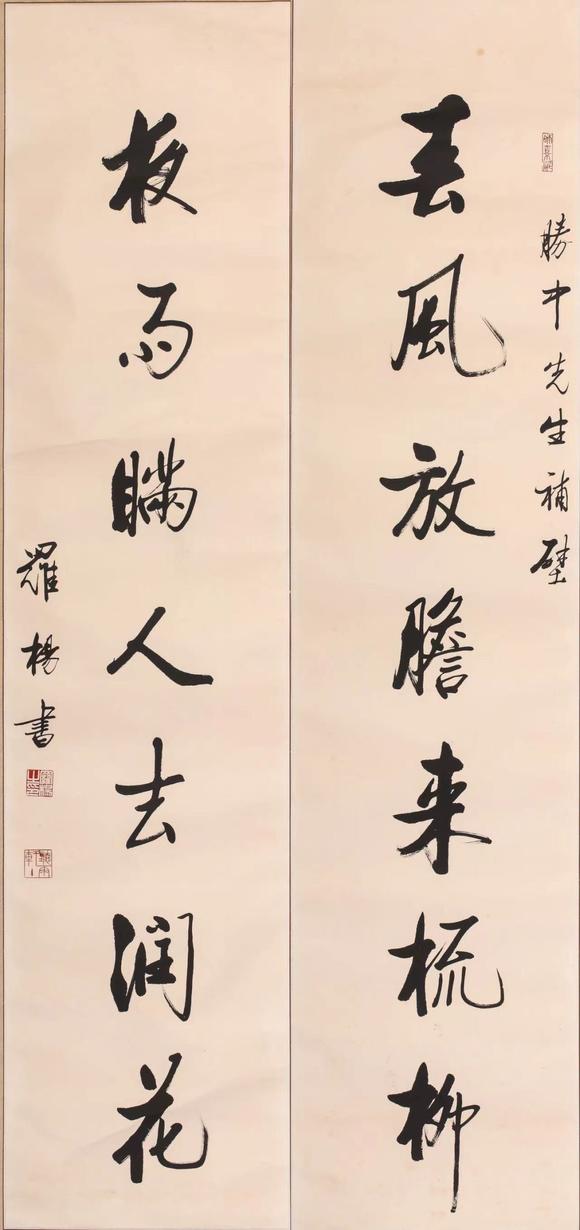 勝中先生補壁
春風放膽来梳柳
夜雨瞞人去潤花
羅楊書